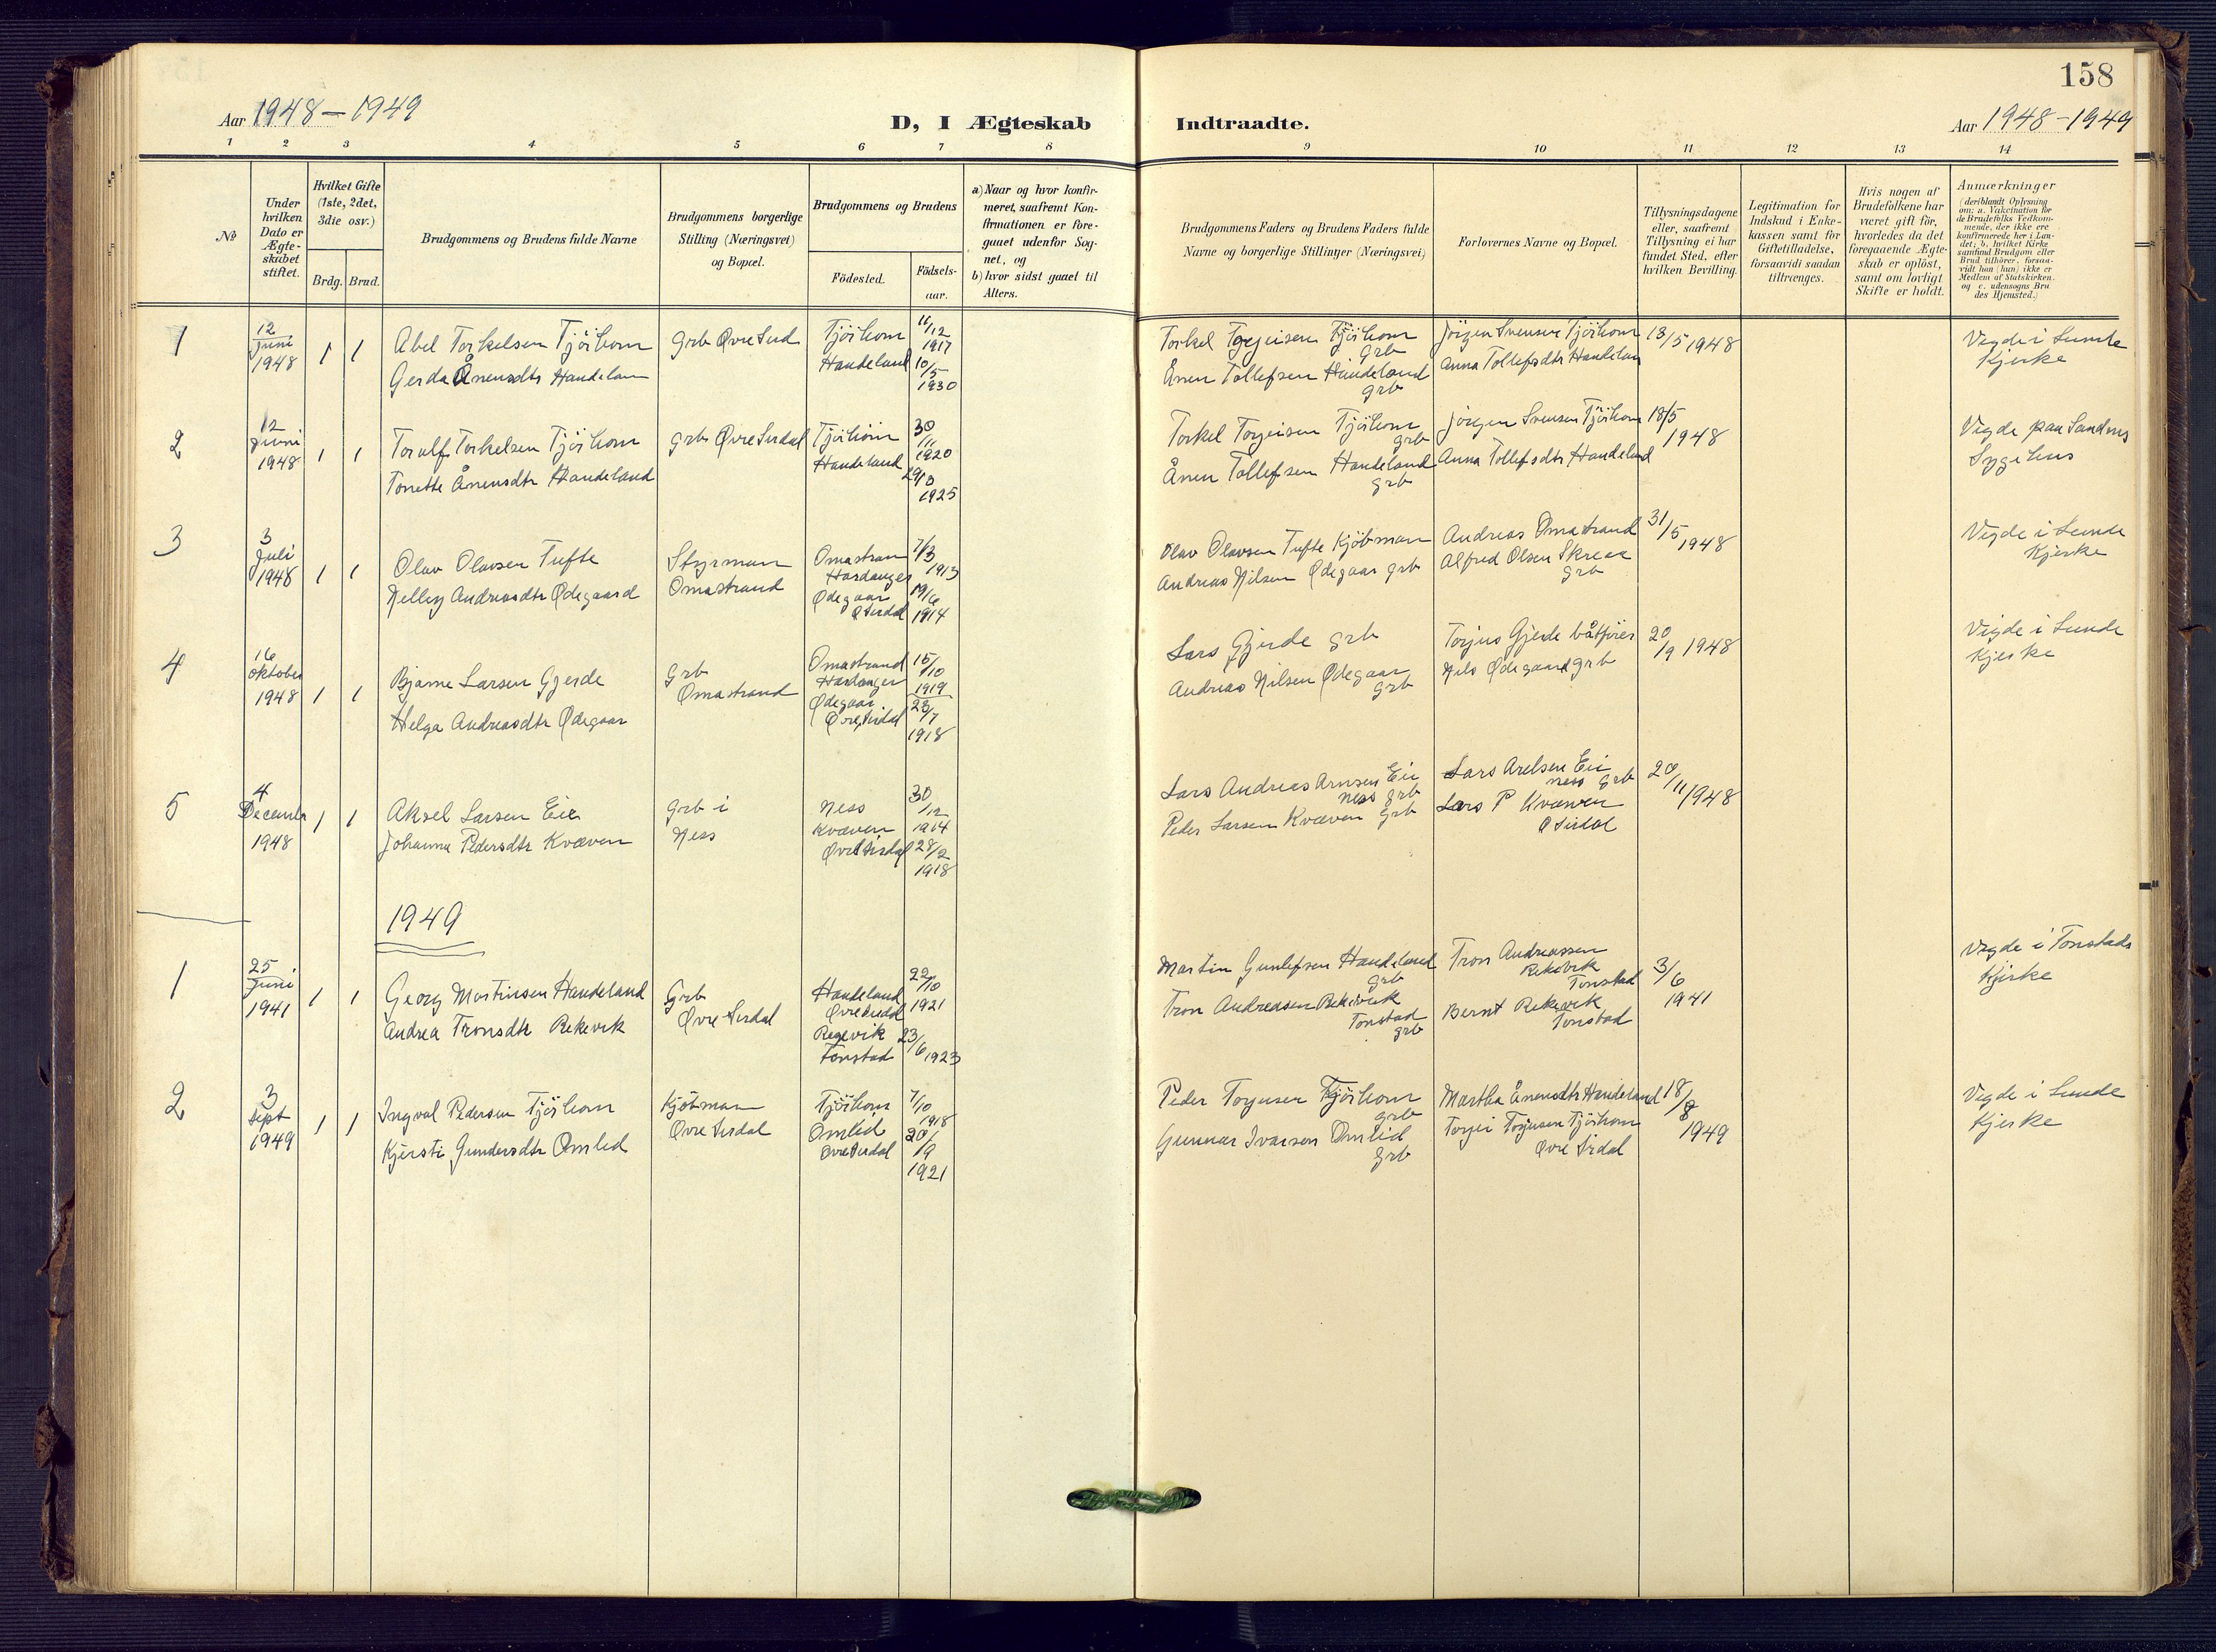 158
Aar 1948 – 1949
D, I Ægteskab Indtraadte.
Aar 1948 – 1949
1 2 3 4 5 6 7 8 9 10 11 12 13 14
№
Under
hvilken
Dato er
Ægte-
skabet
stiftet.
Hvilket Gifte
(1ste, 2det,
3die osv.)
Brdg. Brud.
Brudgommens og Brudens fulde Navne
Brudgommens borgerlige
Stilling (Næringsvei)
og Bopæl.
Brudgommens og Brudens
Födested.
Födsels-
aar.
a) Naar og hvor konfir-
meret, saafremt Kon-
firmationen er fore-
gaaet udenfor Sog-
net, og
b) hvor sidst gaaet til
Alters.
Brudgommens Faders og Brudens Faders fulde
Navne og borgerlige Stillinger (Næringsvei)
Forlovernes Navne og Bopæl.
Tillysningsdagene
eller, saafremt
Tillysning ei har
fundet Sted, efter
hvilken Bevilling.
Legitimation for
Indskud i Enke-
kassen samt for
Giftetilladelse,
forsaavidt saadan
tiltrænges.
Hvis nogen af
Brudefolkene har
været gift för,
hvorledes da det
foregaaende Ægte-
skab er oplöst,
samt om lovligt
Skifte er holdt.
Anmærkninger
(deriblandt Oplysning
om: a. Vakcination for
de Brudefolks Vedkom-
mende, der ikke ere
konfirmerede her i Lan-
det; b. hvilket Kirke
samfund Brudgom eller
Brud tilhörer, forsaa-
vidt han (hun) ikke er
Medlem af Statskirken.
og c. udensogns Bru
des Hjemsted.)
1
12
Juni
1948
1 1
Abel Torkelsen Tjörhom
Gerda Ånensdtr Handelan
Grb Øvre Sird
Tjörhom
Handeland
11/12
1917
10/5
1930
Torkel Torjeisen Tjörhom
Grb
Ånen Tollefsen Handeland
grb
Jörgen Svensen Tjörhom
Anna Tollefsdtr Handelan
18/5 1948
Vigde i Sunde
Kjerke
2
12
Juni
1948
1 1
Torulf Torkelsen Tjörhom
Tonette Ånensdtr Handeland
Grb Øvre Sirdal
Tjörhom
Handeland
30
/11
1920
29/3
1925
Torkel Torjeisen Tjörhom
grb
Ånen Tollefsen Handeland
grb
Jörgen Svensen Tjörhom
Anna Tollefsdtr Handeland
18/5
1948
Vigde paa Sandnes
Sygehus
3
3
Juli
1948
1 1
Olav Olavsen Tufte
Nelley Andreasdtr Ødegaard
Styrman
Omastrand
Omastran
Hardanger
Ødegaar
Ø Sirdal
7/3
1913
19/6
1914
Olav Olavsen Tufte Kjöbman
Andreas Nilsen Ødegaar grb
Andreas Omastrand
Alfred Olsen Skreaa
Grb
31/5 1948
Vigde i Sunde
Kjerke
4
16
oktober
1948
1 1
Bjarne Larsen Gjerde
Helga Andreasdtr Ødegaar
Grb
Omastrand
Omastrand
Hardanger
Ødegaar
Øvre Sirdal
15/10
1919
23/7
1918
Lars Gjerde grb
Andreas Nilsen Ødegaar
Grb
Torjus Gjerde båtförer
Nils Ødegaard grb
20/9 1948
Vigde i Sunde
Kjerke
5
4
Decembr
1948
1 1
Aksel Larsen Eie
Johanna Pedersdtr Kvæven
Grb i
Ness
Ness
Kvæven
Øvre Sirdal
30
/12
1914
28/2
1918
Lars Andreas Arnsen Eie
ness grb
Peder Larsen Kvæven grb
Lars Arelsen Eie
ness grb
Lars P Kvæven
Ø Sirdal
20/11 1948
1949
1
25
Juni
1941
1 1
Georg Martinsen Handeland
Andrea Tronsdtr Rekevik
Grb
Øvre Sirdal
Handeland
Øvre Sirdal
Regevik
Tonstad
22/10
1921
23/6 1923
Martin Gunlefsen Handeland
grb
Tron Andreasen Rekevik
Tonstad
grb
Tron Andreassen
Rekevik
Tonstad
Bernt Rekevik
Tonstad
3/6
1941
Vigde i Tonstads
Kjirke
2
3
Sept
1949
1 1
Ingval Pedersen Tjörhom
Kjersti Gundersdtr Omlid
Kjöbman
Øvre Sirdal
Tjörhom
Omlid
Øvre Sirdal
7/10
1918
20/9
1921
Peder Torjusen Tjörhom
grb
Gunnar Ivarsen Omlid
Grb
Martha Ånensdtr Handeland
Torjei Torjusen Tjörhom
Øvre Sirdal
18/8
1949
Vigde i Sunde
Kjerke